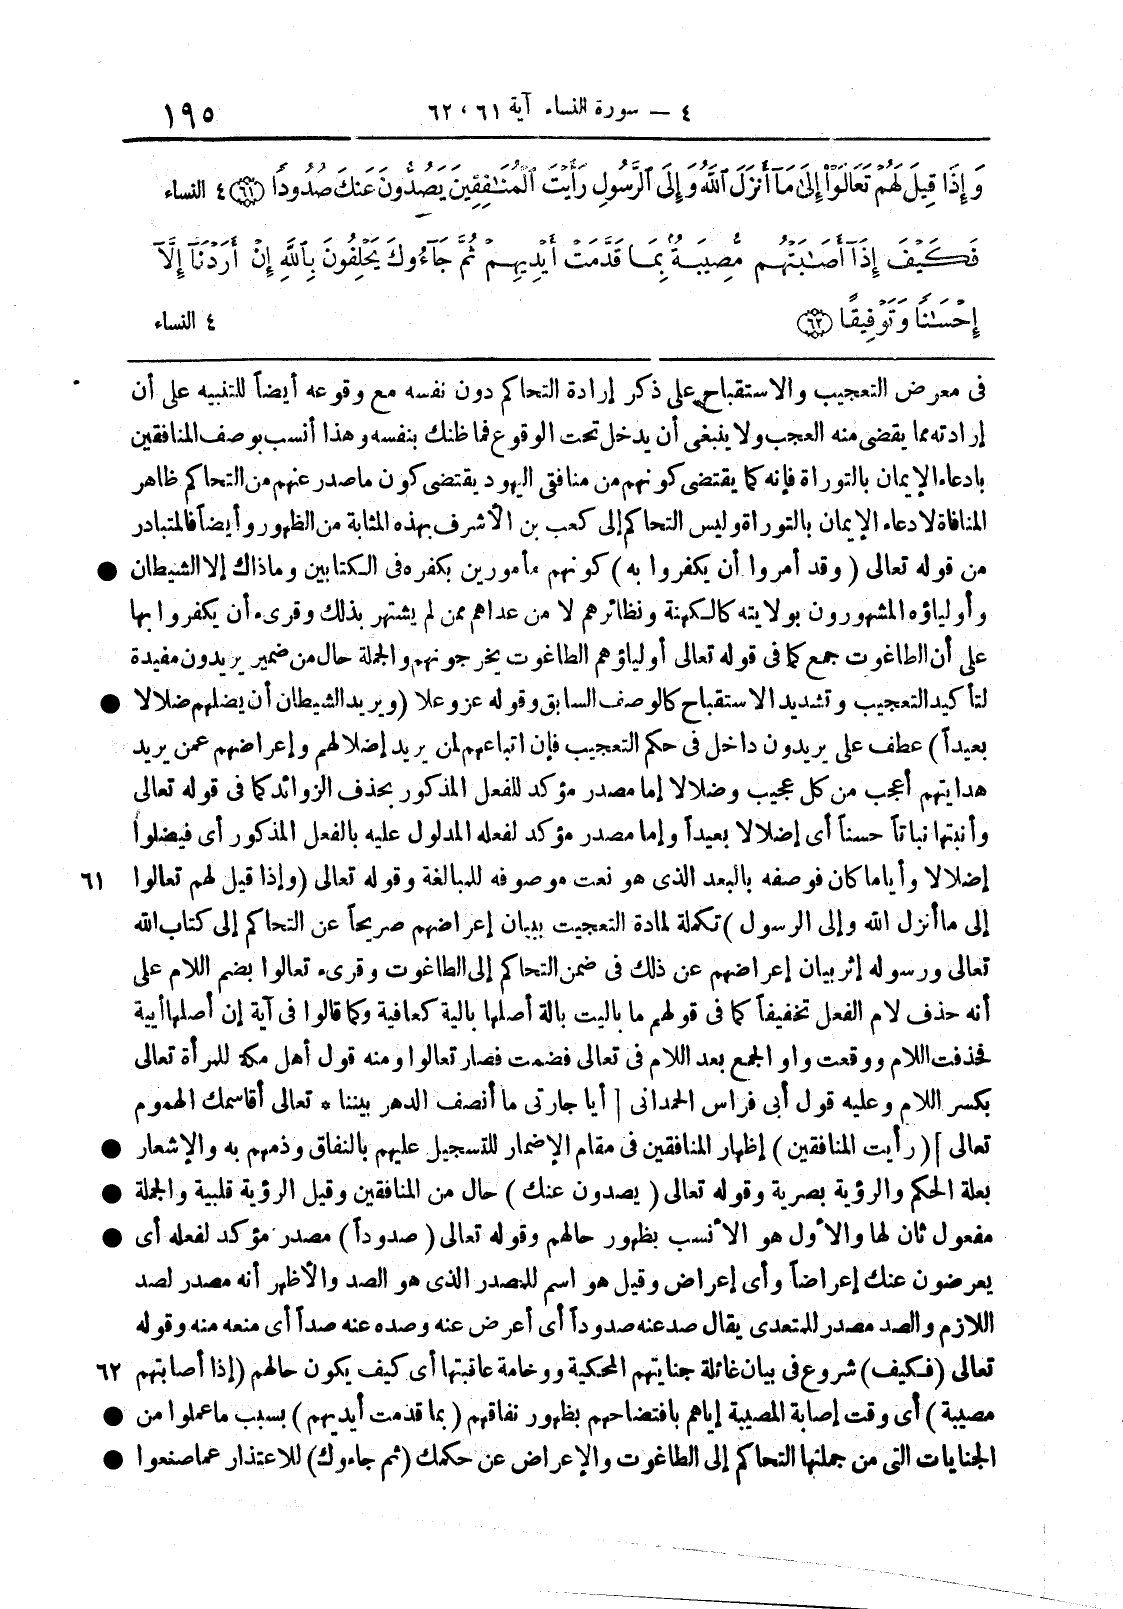 ٤ — سورة النساء آية ٦١، ٦٢ ١٩٥
وَإِذَا قِيلَ لَهُمْ تَعَالَوْا۟ إِلَىٰ مَآ أَنزَلَ ٱللَّهُ وَإِلَى ٱلرَّسُولِ رَأَيْتَ ٱلْمُنَـٰفِقِينَ يَصُدُّونَ عَنكَ صُدُودًا ﴿٦١﴾ ٤ النساء
فَكَيْفَ إِذَآ أَصَـٰبَتْهُم مُّصِيبَةٌۢ بِمَا قَدَّمَتْ أَيْدِيهِمْ ثُمَّ جَآءُوكَ يَحْلِفُونَ بِٱللَّهِ إِنْ أَرَدْنَآ إِلَّآ
إِحْسَـٰنًا وَتَوْفِيقًا ﴿٦٢﴾ ٤ النساء
فى معرض التعجيب والاستقباح على ذكر إرادة التحاكم دون نفسه مع وقوعه أيضاً للتنبيه على أن
إرادته مما يقضى منه العجب ولا ينبغى أن يدخل تحت الوقوع فما ظنك بنفسه وهذا أنسب بوصف المنافقين
بادعاء الإيمان بالتوراة فإنه كما يقتضى كونهم من منافقى اليهود يقتضى كون ما صدر عنهم من التحاكم ظاهر
المنافاة لادعاء الإيمان بالتوراة وليس التحاكم إلى كعب بن الأشرف بهذه المثابة من الظهور وأيضاً فالمتبادر
من قوله تعالى (وقد أمروا أن يكفروا به) كونهم مأمورين بكفره فى الكتابين وماذاك إلا الشيطان ●
وأولياؤه المشهورون بولايته كالكهنة ونظائرهم لا من عداهم ممن لم يشتهر بذلك وقرىء أن يكفروا بها
على أن الطاغوت جمع كما فى قوله تعالى أولياؤهم الطاغوت يخرجونهم والجملة حال من ضمير يريدون مفيدة
لتأكيد التعجيب وتشديد الاستقباح كالوصف السابق وقوله عز وعلا (ويريد الشيطان أن يضلهم ضلالا ●
بعيداً) عطف على يريدون داخل فى حكم التعجيب فإن اتباعهم لمن يريد إضلالهم وإعراضهم عمن يريد
هدايتهم أعجب من كل عجيب وضلالا إما مصدر مؤكد للفعل المذكور بحذف الزوائد كما فى قوله تعالى
وأنبتها نباتاً حسناً أى إضلالا بعيداً وإما مصدر مؤكد لفعله المدلول عليه بالفعل المذكور أى فيضلوا
إضلالا وأياما كان فوصفه بالبعد الذى هو نعت موصوفه للمبالغة وقوله تعالى (وإذا قيل لهم تعالوا ٦١
إلى ما أنزل الله وإلى الرسول) تكملة لمادة التعجيب ببيان إعراضهم صريحاً عن التحاكم إلى كتاب الله
تعالى ورسوله إثر بيان إعراضهم عن ذلك فى ضمن التحاكم إلى الطاغوت وقرىء تعالوا بضم اللام على
أنه حذف لام الفعل تخفيفاً كما فى قولهم ما باليت بالة أصلها بالية كعافية وكما قالوا فى آية إن أصلها أيية
فحذفت اللام ووقعت واو الجمع بعد اللام فى تعالى فضمت فصار تعالوا ومنه قول أهل مكة للمرأة تعالى
بكسر اللام وعليه قول أبى فراس الحمدانى [أيا جارتى ما أنصف الدهر بيننا * تعالى أقاسمك الهموم
تعالى] (رأيت المنافقين) إظهار المنافقين فى مقام الإضمار للتسجيل عليهم بالنفاق وذمهم به والإشعار ●
بعلة الحكم والرؤية بصرية وقوله تعالى (يصدون عنك) حال من المنافقين وقيل الرؤية قلبية والجملة ●
مفعول ثان لها والأول هو الأنسب بظهور حالهم وقوله تعالى (صدوداً) مصدر مؤكد لفعله أى ●
يعرضون عنك إعراضاً وأى إعراض وقيل هو اسم للمصدر الذى هو الصد والأظهر أنه مصدر لصد
اللازم والصد مصدر للمتعدى يقال صد عنه صدوداً أى أعرض عنه وصده عنه صداً أى منعه منه وقوله
تعالى (فكيف) شروع فى بيان غائلة جنايتهم المحكية ووخامة عاقبتها أى كيف يكون حالهم (إذا أصابتهم ٦٢
مصيبة) أى وقت إصابة المصيبة إياهم بافتضاحهم بظهور نفاقهم (بما قدمت أيديهم) بسبب ما عملوا من ●
الجنايات التى من جملتها التحاكم إلى الطاغوت والإعراض عن حكمك (ثم جاءوك) للاعتذار عما صنعوا ●